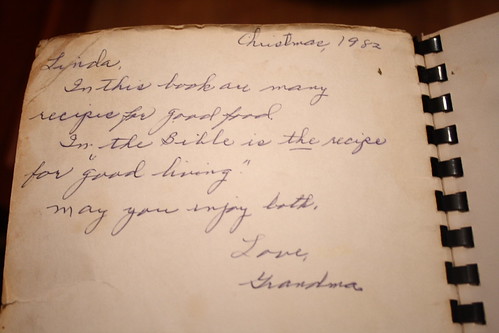 Christmas, 1982
Lynda,
In this book are many
recipes for good food.
In the Bible is the recipe
for "good living."
May you enjoy both.
Love,
Grandma